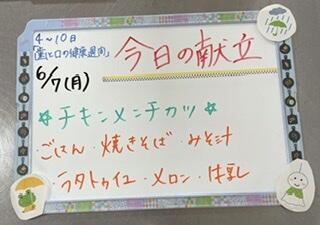 4～10日
「歯と口の健康週間」
今日の献立
6/7(月)
☆チキンメンチカツ☆
・ごはん・焼きそば・みそ汁
・ラタトゥイユ・メロン・牛乳